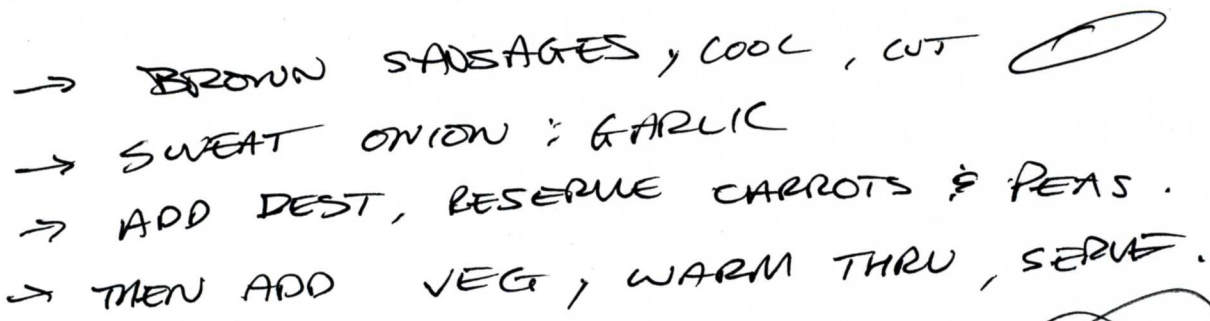 → BROWN SAUSAGES, COOL, CUT
→ SWEAT ONION & GARLIC
→ ADD DEST, RESERVE CARROTS & PEAS.
→ THEN ADD VEG, WARM THRU, SERVE.